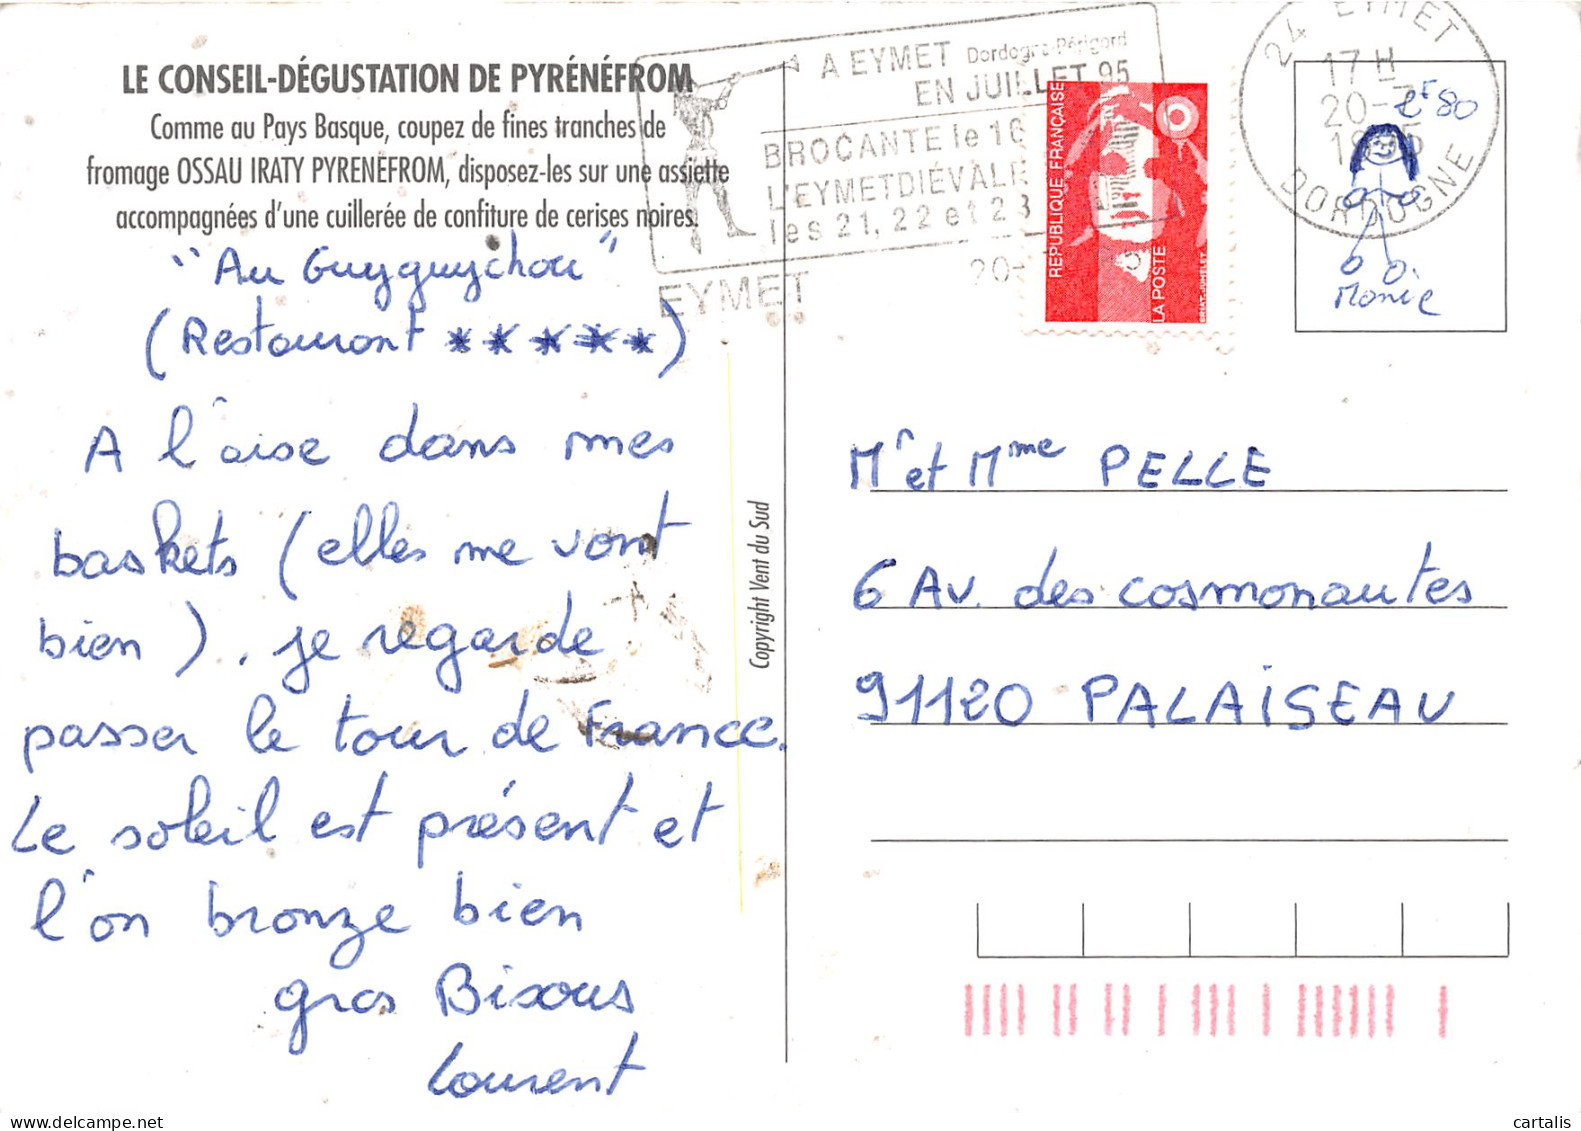 LE CONSEIL-DÉGUSTATION DE PYRÉNÉFROM
Comme au Pays Basque, coupez de fines tranches de
fromage OSSAU IRATY PYRENEFROM, disposez-les sur une assiette
accompagnées d'une cuillerée de confiture de cerises noires.
"Au Guyguychou"
(Restaurant *****)
A l'aise dans mes
baskets (elles me vont
bien). je regarde
passer le tour de France.
Le soleil est présent et
l'on bronze bien
gros Bisous
Laurent
Copyright Vent du Sud
A EYMET Dordogne-Périgord
EN JUILLET 95
BROCANTE le 16
L'EYMETDIÉVALE
les 21, 22 et 23
EYMET
20-
REPUBLIQUE FRANÇAISE
LA POSTE
24 EYMET
17H
20-7
1995
DORDOGNE
2F80
Monie
Mr et Mme PELLE
6 Av. des cosmonautes
91120 PALAISEAU
cartalis